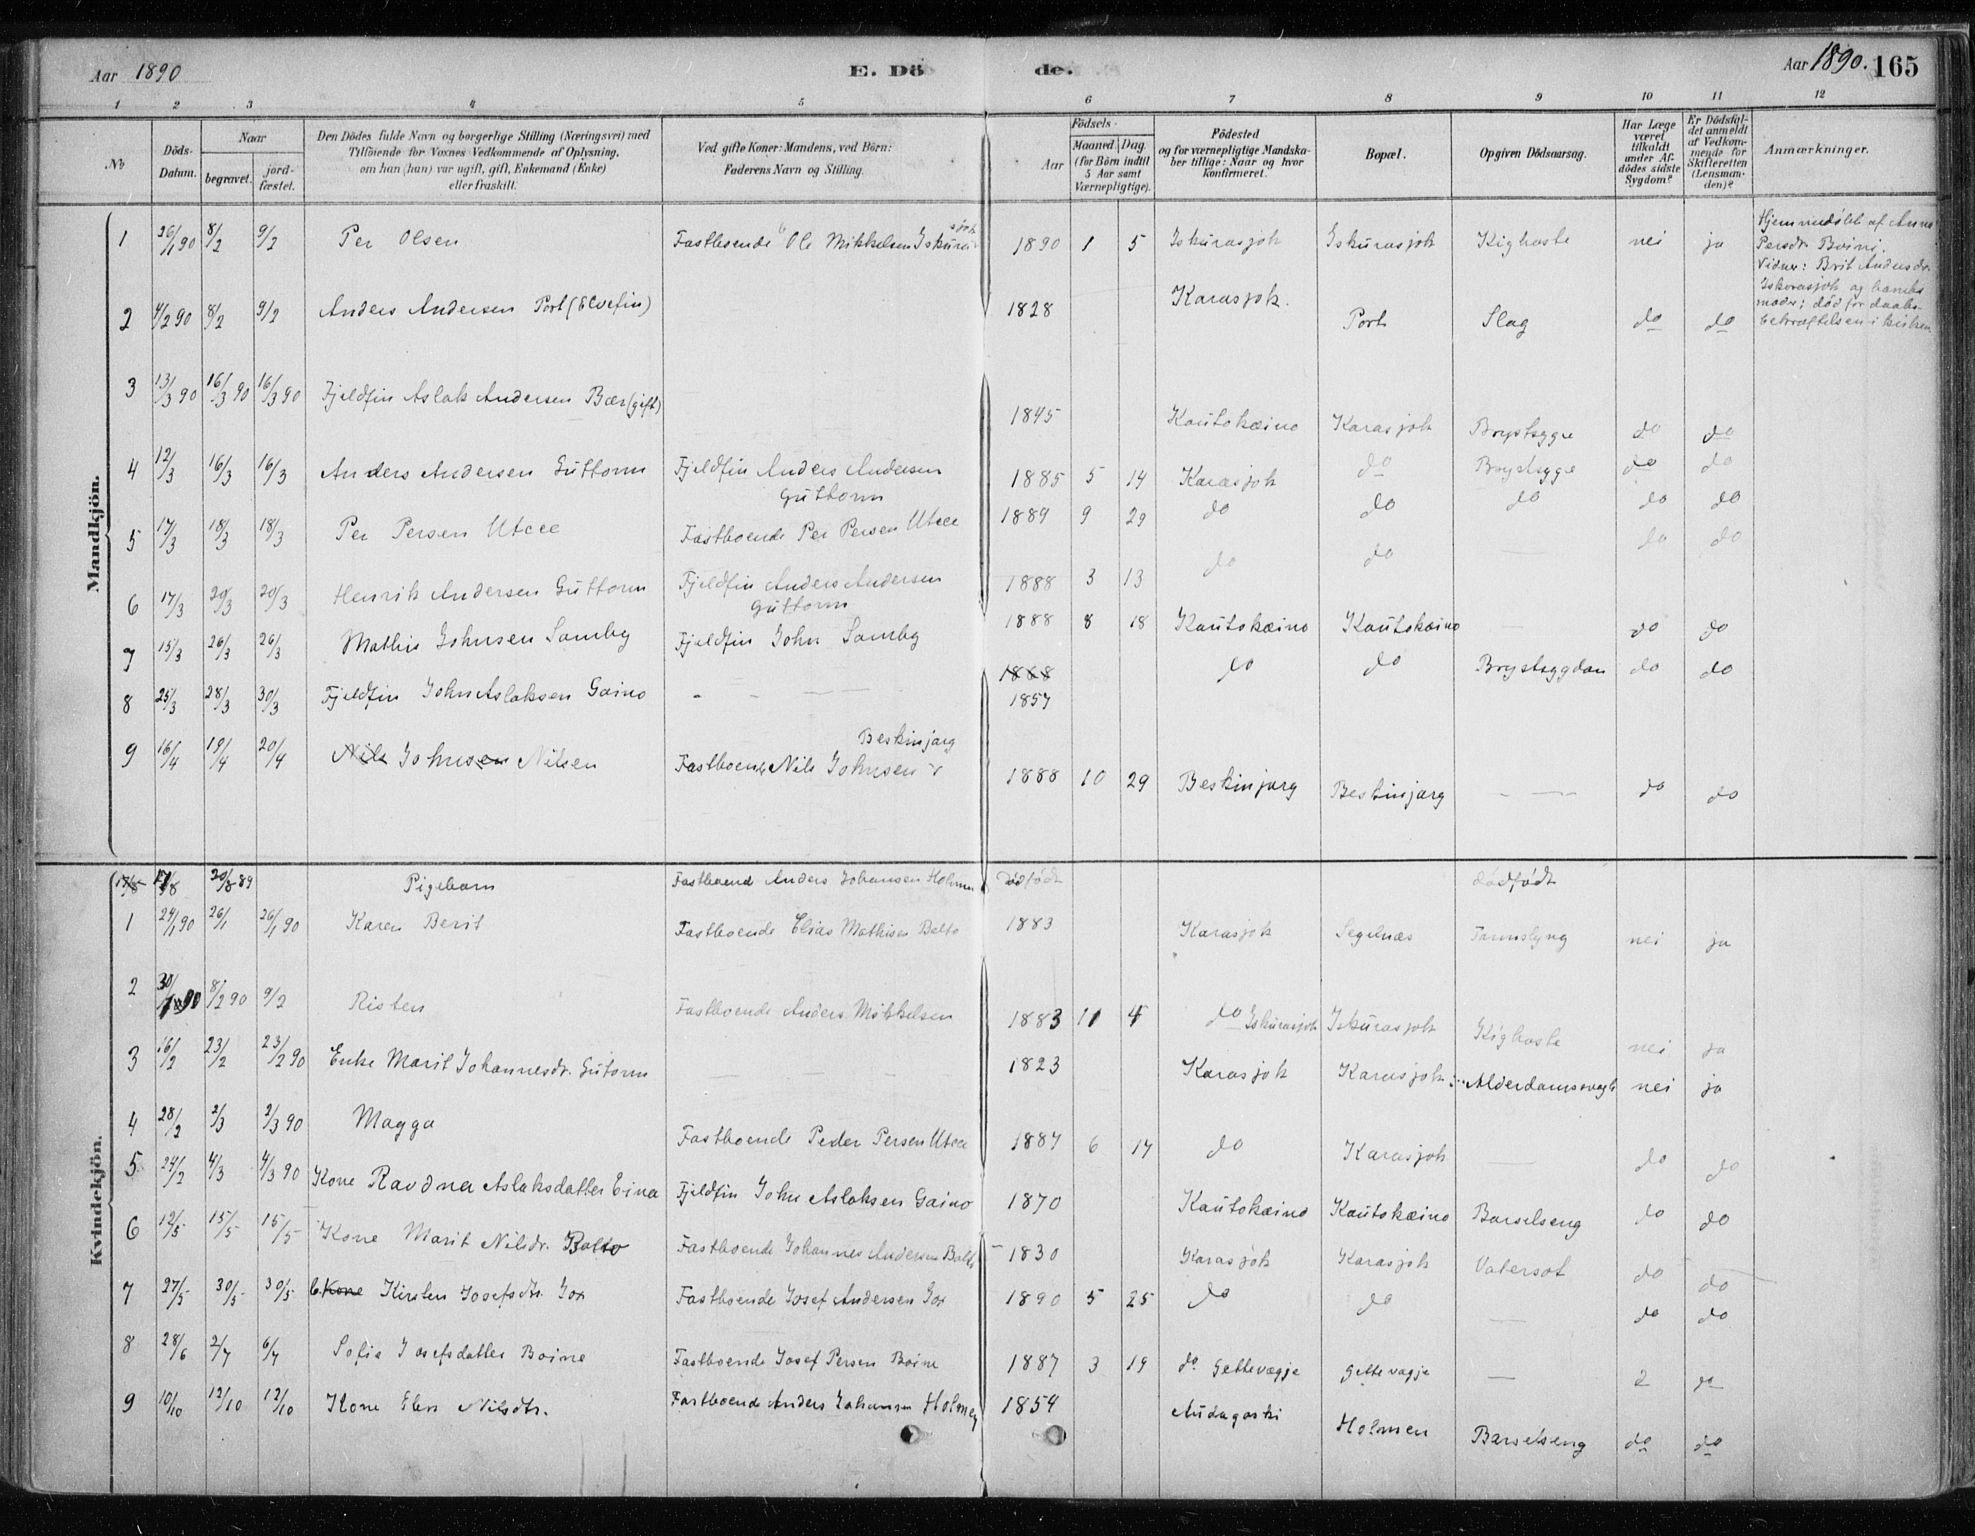 Aar 1890 E. Dö de. Aar 1890. 165
1 2 3 4 5 6 7 8 9 10 11 12
No
Döds-Datum.
Naar
begravet.
jord-fæstet.
Den Dödes fulde Navn og borgerlige Stilling (Næringsvei) med
Tilföiende for Voxnes Vedkommende af Oplysning,
om han (hun) var ugift, gift, Enkemand (Enke)
eller fraskilt.
Ved gifte Koner: Mandens, ved Börn:
Faderens Navn og Stilling.
Födsels-
Aar
Maaned. Dag.
(for Börn indtil
5 Aar samt
Værnepligtige).
Födested
og for værnepligtige Mandska-
ber tillige: Naar og hvor
konfirmeret.
Bopæl.
Opgiven Dödsaarsag.
Har Læge
været
tilkaldt
under Af-
dödes sidste
Sygdom?
Er Dödsfal-
det anmeldt
af Vedkom-
mende for
Skifteretten
(Lensman-
den)?
Anmærkninger.
Mandkjön.
1 26/1 90 8/2 9/2 Per Olsen Fastboende Ole Mikkelsen Iskurasjok 1890 1 5 Iskurasjok Iskurasjok Kighoste nei ja
Hjemmedøbt af Anne
Persdr. Boini.
Vidner: Brit Andersdr.
Iskorasjok og barnets
moder; død før daabs-
bekræftelsen i kirken
2 4/2 90 8/2 9/2 Anders Andersen Port (Elvefin) 1828 Karasjok. Port Slag do do
3 13/3 90 16/3 90 16/3 90 Fjeldfin Aslak Andersen Bær (gift) 1845 Kautokæino Karasjok Brystsyge do do
4 12/3 16/3 16/3 Anders Andersen Guttorm Fjeldfin Anders Andersen Guttorm 1885 5 14 Karasjok do Brystsyge do do
5 17/3 18/3 18/3 Per Persen Utcce Fastboende Per Persen Utcce 1889 9 29 do do do do do
6 17/3 20/3 20/3 Henrik Andersen Guttorm Fjeldfin Anders Andersen Guttorm 1888 3 13 do do — do do
7 15/3 26/3 26/3 Mathis Johnsen Somby Fjeldfin John Somby 1888 8 18 Kautokæino Kautokæino — do do
8 25/3 28/3 30/3 Fjeldfin John Aslaksen Gaino - - — 1868 1857 do do Brystsygdom do do
9 16/4 19/4 20/4 Nils Johnsen Nilsen Fastboende Nils Johnsen Beskinjarg 1888 10 29 Beskinjarg Beskinjarg — do do
Kvindekjön.
17/8 20/8 89 Pigebarn Fastboend Anders Johansen Holmen Dødfødt dødfødt
1 24/1 90 26/1 26/1 90 Karen Berit Fastboende Elias Mathisen Balto 1883 Karasjok Segelnæs nei ja
2 30/1 90 8/2 90 9/2 Risten Fastboende Anders Mikkelsen 1883 11 4 do Iskurasjok Iskurasjok Kighoste nei ja
3 16/2 23/2 23/2 90 Enke Marit Johannesdr. Gutorm — — — 1823 Karasjok Karasjok Alderdomssvagh nei ja
4 28/2 2/3 2/3 90 Magga Fastboende Peder Persen Utcce 1887 6 17 do Karasjok — do do
5 24/2 4/3 4/3 90 Kone Ravdna Aslaksdatter Eina Fjeldfin John Aslaksen Gaino 1870 Kautokæino Kautokæino Barselseng do do
6 12/5 15/5 15/5 Kone Marit Nilsdr. Balto Fastboende Johannes Andersen Balto 1830 Karasjok Karasjok Vatersot do do
7 27/5 30/5 30/5 Kone Kirsten Josefsdtr. Gox Fastboende Josef Andersen Gox 1890 5 25 do do — do do
8 28/6 2/7 6/7 Sofie Josefsdatter Boine Fastboende Josef Persen Boine 1887 3 19 do Gettevægje Gettevagje — do
9 10/10 12/10 12/10 Kone Elen Nilsdtr. Fastboende Anders Johansen Holmen 1854 Audagoski Holmen Barselseng do do